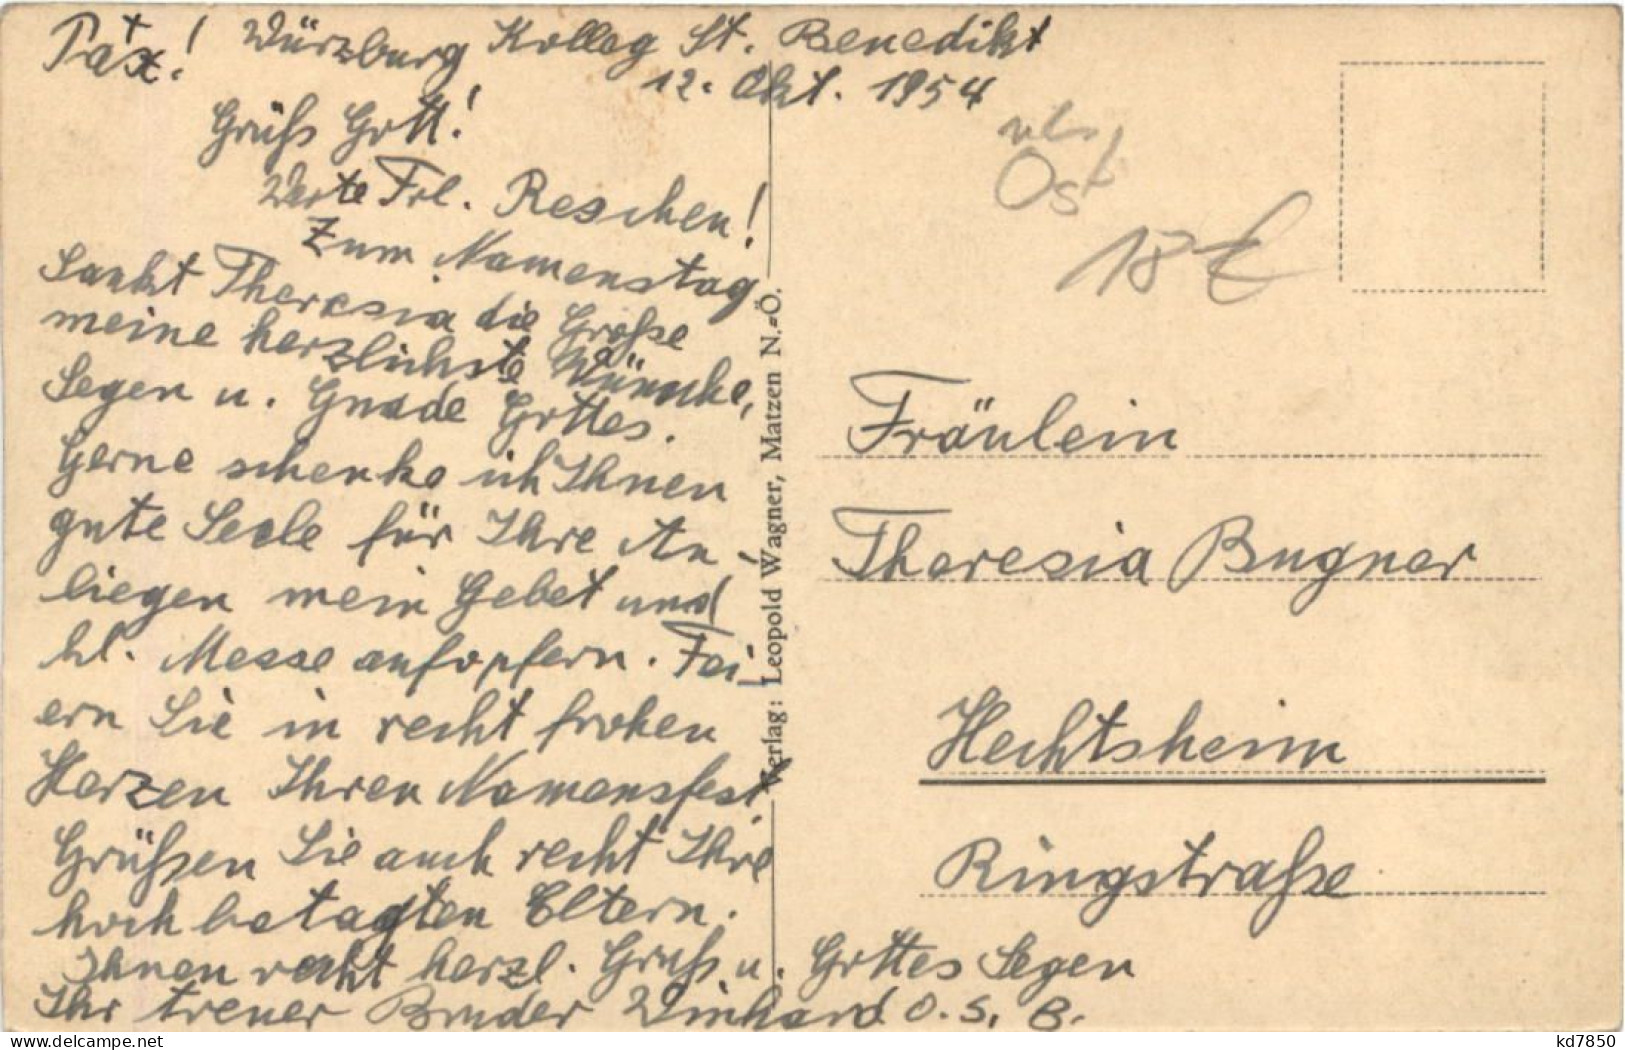 Pax! Würzburg Kolleg St. Benedikt
12. Okt. 1954
Grüß Gott!
Werte Frl. Reschen!
Zum Namenstag
Sankt Theresia die Große
meine herzlichste Wünsche,
Segen u. Gnade Gottes.
Gerne schenke ich Ihnen
gute Seele für Ihre An-
liegen mein Gebet und
hl. Messe aufopfern. Fei-
ern Sie in recht frohen
Herzen Ihren Namensfest.
Grüßen Sie auch recht Ihre
hoch betagten Eltern.
Ihnen recht herzl. Gruß u. Gottes Segen
Ihr treuer Bruder Winhard O. S. B.
Verlag: Leopold Wagner, Matzen N.-Ö.
Ost
18 €
Fräulein
Theresia Bugner
Hechtsheim
Ringstraße
kd7850